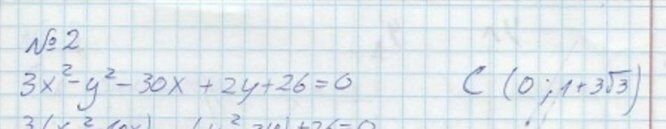 №2
3x²-y²-30x+2y+26=0 C (0; 1+3√3)